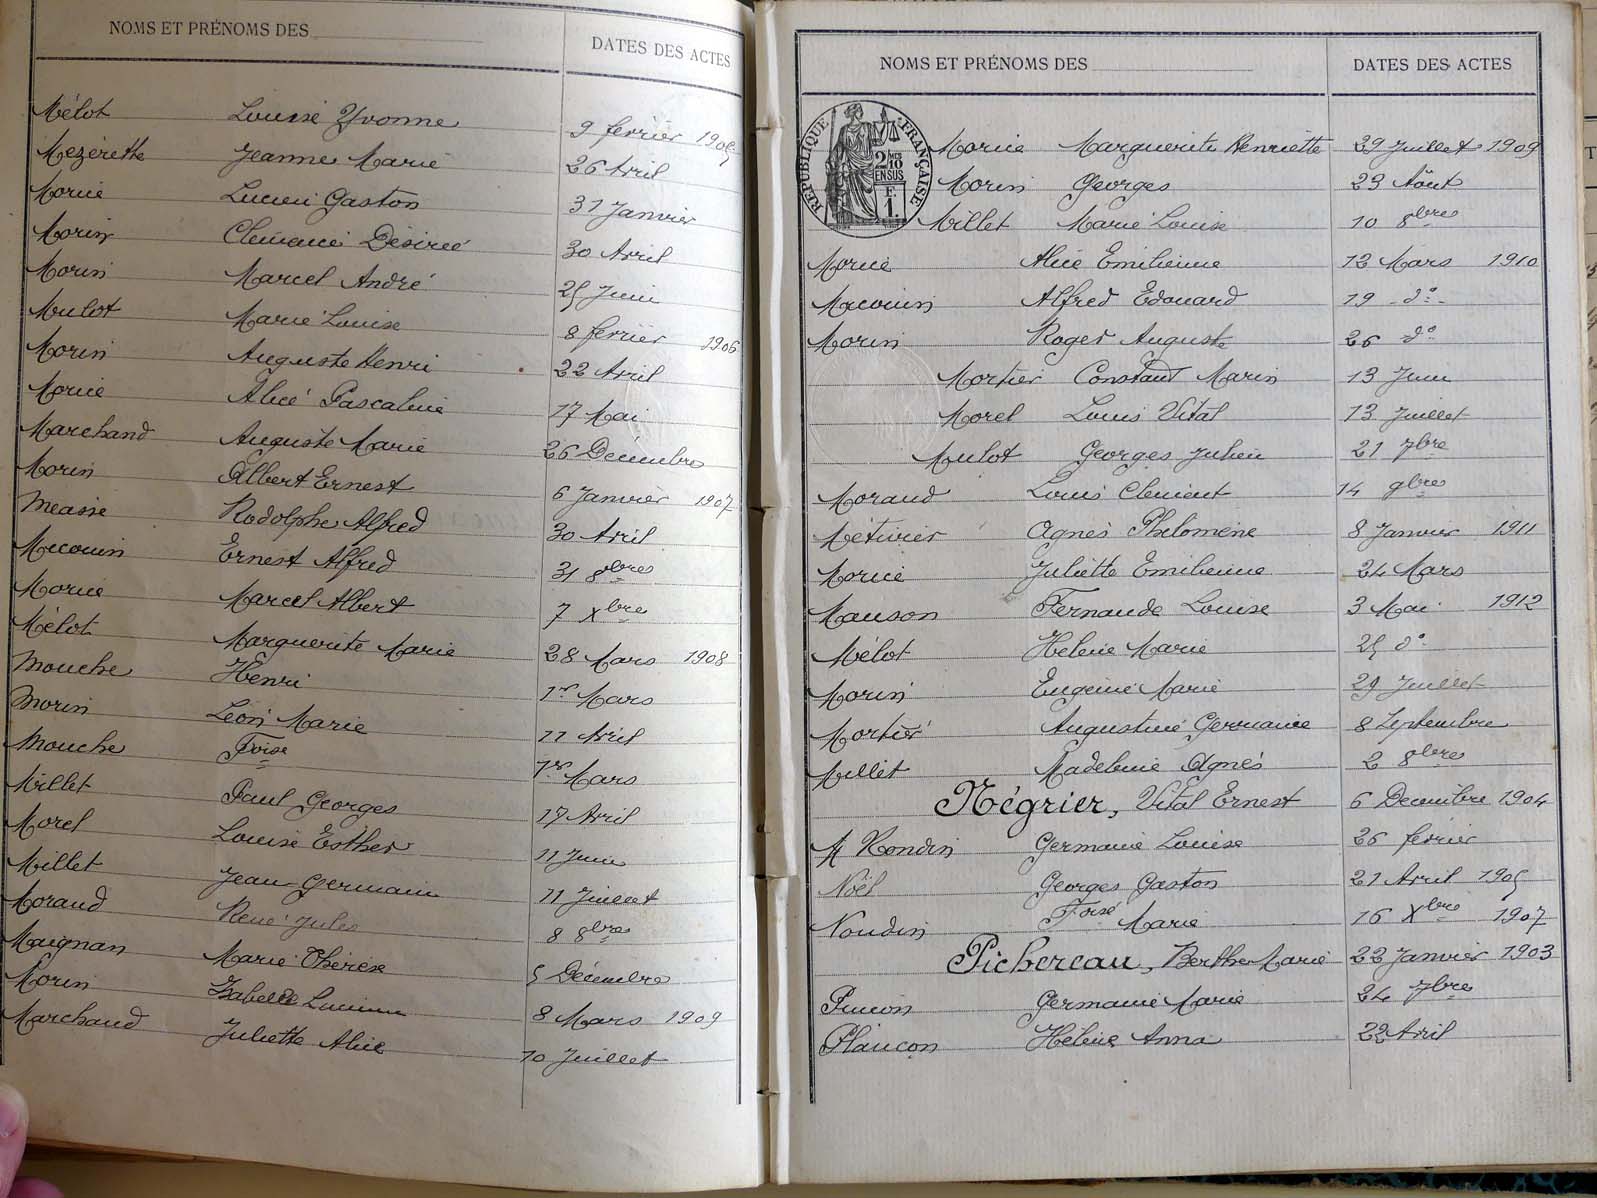 NOMS ET PRÉNOMS DES
DATES DES ACTES
Mélot Louise Yvonne 9 février 1905
Mezerette Jeanne Marie 26 Avril
Morice Lucien Gaston 31 Janvier
Morin Clémence Désirée 30 Avril
Morin Marcel André 25 Juin
Mulot Marie Louise 8 février 1906
Morin Auguste Henri 22 Avril
Morice Alice Pascaline 17 Mai
Marchand Auguste Marie 26 Décembre
Morin Albert Ernest 6 Janvier 1907
Meane Rodolphe Alfred 30 Avril
Mecouin Ernest Alfred 31 8bres
Morice Marcel Albert 7 Xbre
Mélot Marguerite Marie 28 Mars 1908
Mouche Henri 1er Mars
Morin Léon Marie 11 Avril
Mouche Foise 1er Mars
Millet Paul Georges 17 Avril
Morel Louise Esther 11 Juin
Millet Jean-Germain 11 Juillet
Moraud René Jules 8 8bres
Maignan Marie Thérèse 5 Décembre
Morin Isabelle Lucienne 8 Mars 1909
Marchand Juliette Alice 10 Juillet
NOMS ET PRÉNOMS DES
DATES DES ACTES
RÉPUBLIQUE FRANÇAISE
2 MES 10
EN SUS
F.
1.
Morice Marguerite Henriette 29 Juillet 1909
Morin Georges 23 Août
Millet Marie Louise 10 8bres
Morice Alice Emilienne 12 Mars 1910
Mecouin Alfred Edouard 19 - do -
Morin Roger Auguste 26 do
Mortier Constant Marin 13 Juin
Morel Louis Vital 13 Juillet
Mulot Georges Julien 21 7bre
Moraud Louis Clément 14 9bres
Métivier Agnès Philomène 8 Janvier 1911
Morice Juliette Emilienne 24 Mars
Mauson Fernande Louise 3 Mai 1912
Mélot Helène Marie 25 do
Morin Eugénie Marie 29 Juillet
Mortier Augustine Germaine 8 Septembre
Millet Madeleine Agnès 2 8bres
Négrier, Vital Ernest 6 Decembre 1904
Nondin Germaine Louise 26 février
Noël Georges Gaston 21 Avril 1905
Noudin Foise Marie 16 Xbre 1907
Pichereau, Berthe Marie 22 Janvier 1903
Pinson Germaine Marie 24 7bres
Plançon Helène Anna 22 Avril